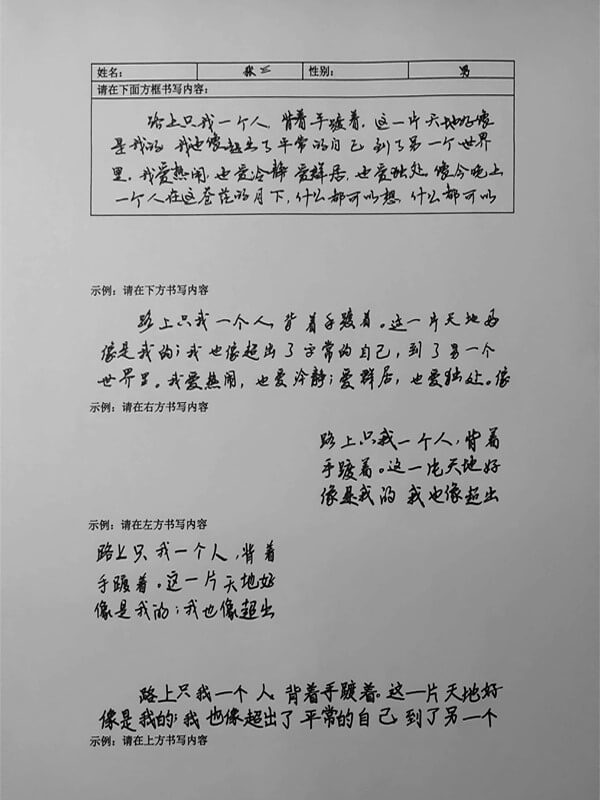 姓名： 张三 性别： 男
请在下面方框书写内容：
路上只我一个人，背着手踱着。这一片天地好像
是我的，我也像超出了平常的自己，到了另一个世界
里。我爱热闹，也爱冷静，爱群居，也爱独处。像今晚上，
一个人在这苍茫的月下，什么都可以想，什么都可以
示例：请在下方书写内容
路上只我一个人，背着手踱着。这一片天地好
像是我的；我也像超出了平常的自己，到了另一个
世界里。我爱热闹，也爱冷静；爱群居，也爱独处。像
示例：请在右方书写内容
路上只我一个人，背着
手踱着。这一片天地好
像是我的 我也像超出
示例：请在左方书写内容
路上只我一个人，背着
手踱着。这一片天地好
像是我的；我也像超出
路上只我一个人，背着手踱着。这一片天地好
像是我的；我也像超出了平常的自己 到了另一个
示例：请在上方书写内容